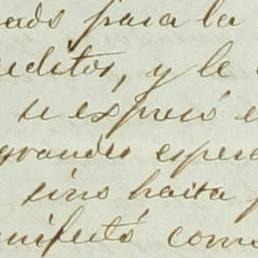 ads para la
editos, y le
se expresó e
grandes espera
sino hasta
nifestó como